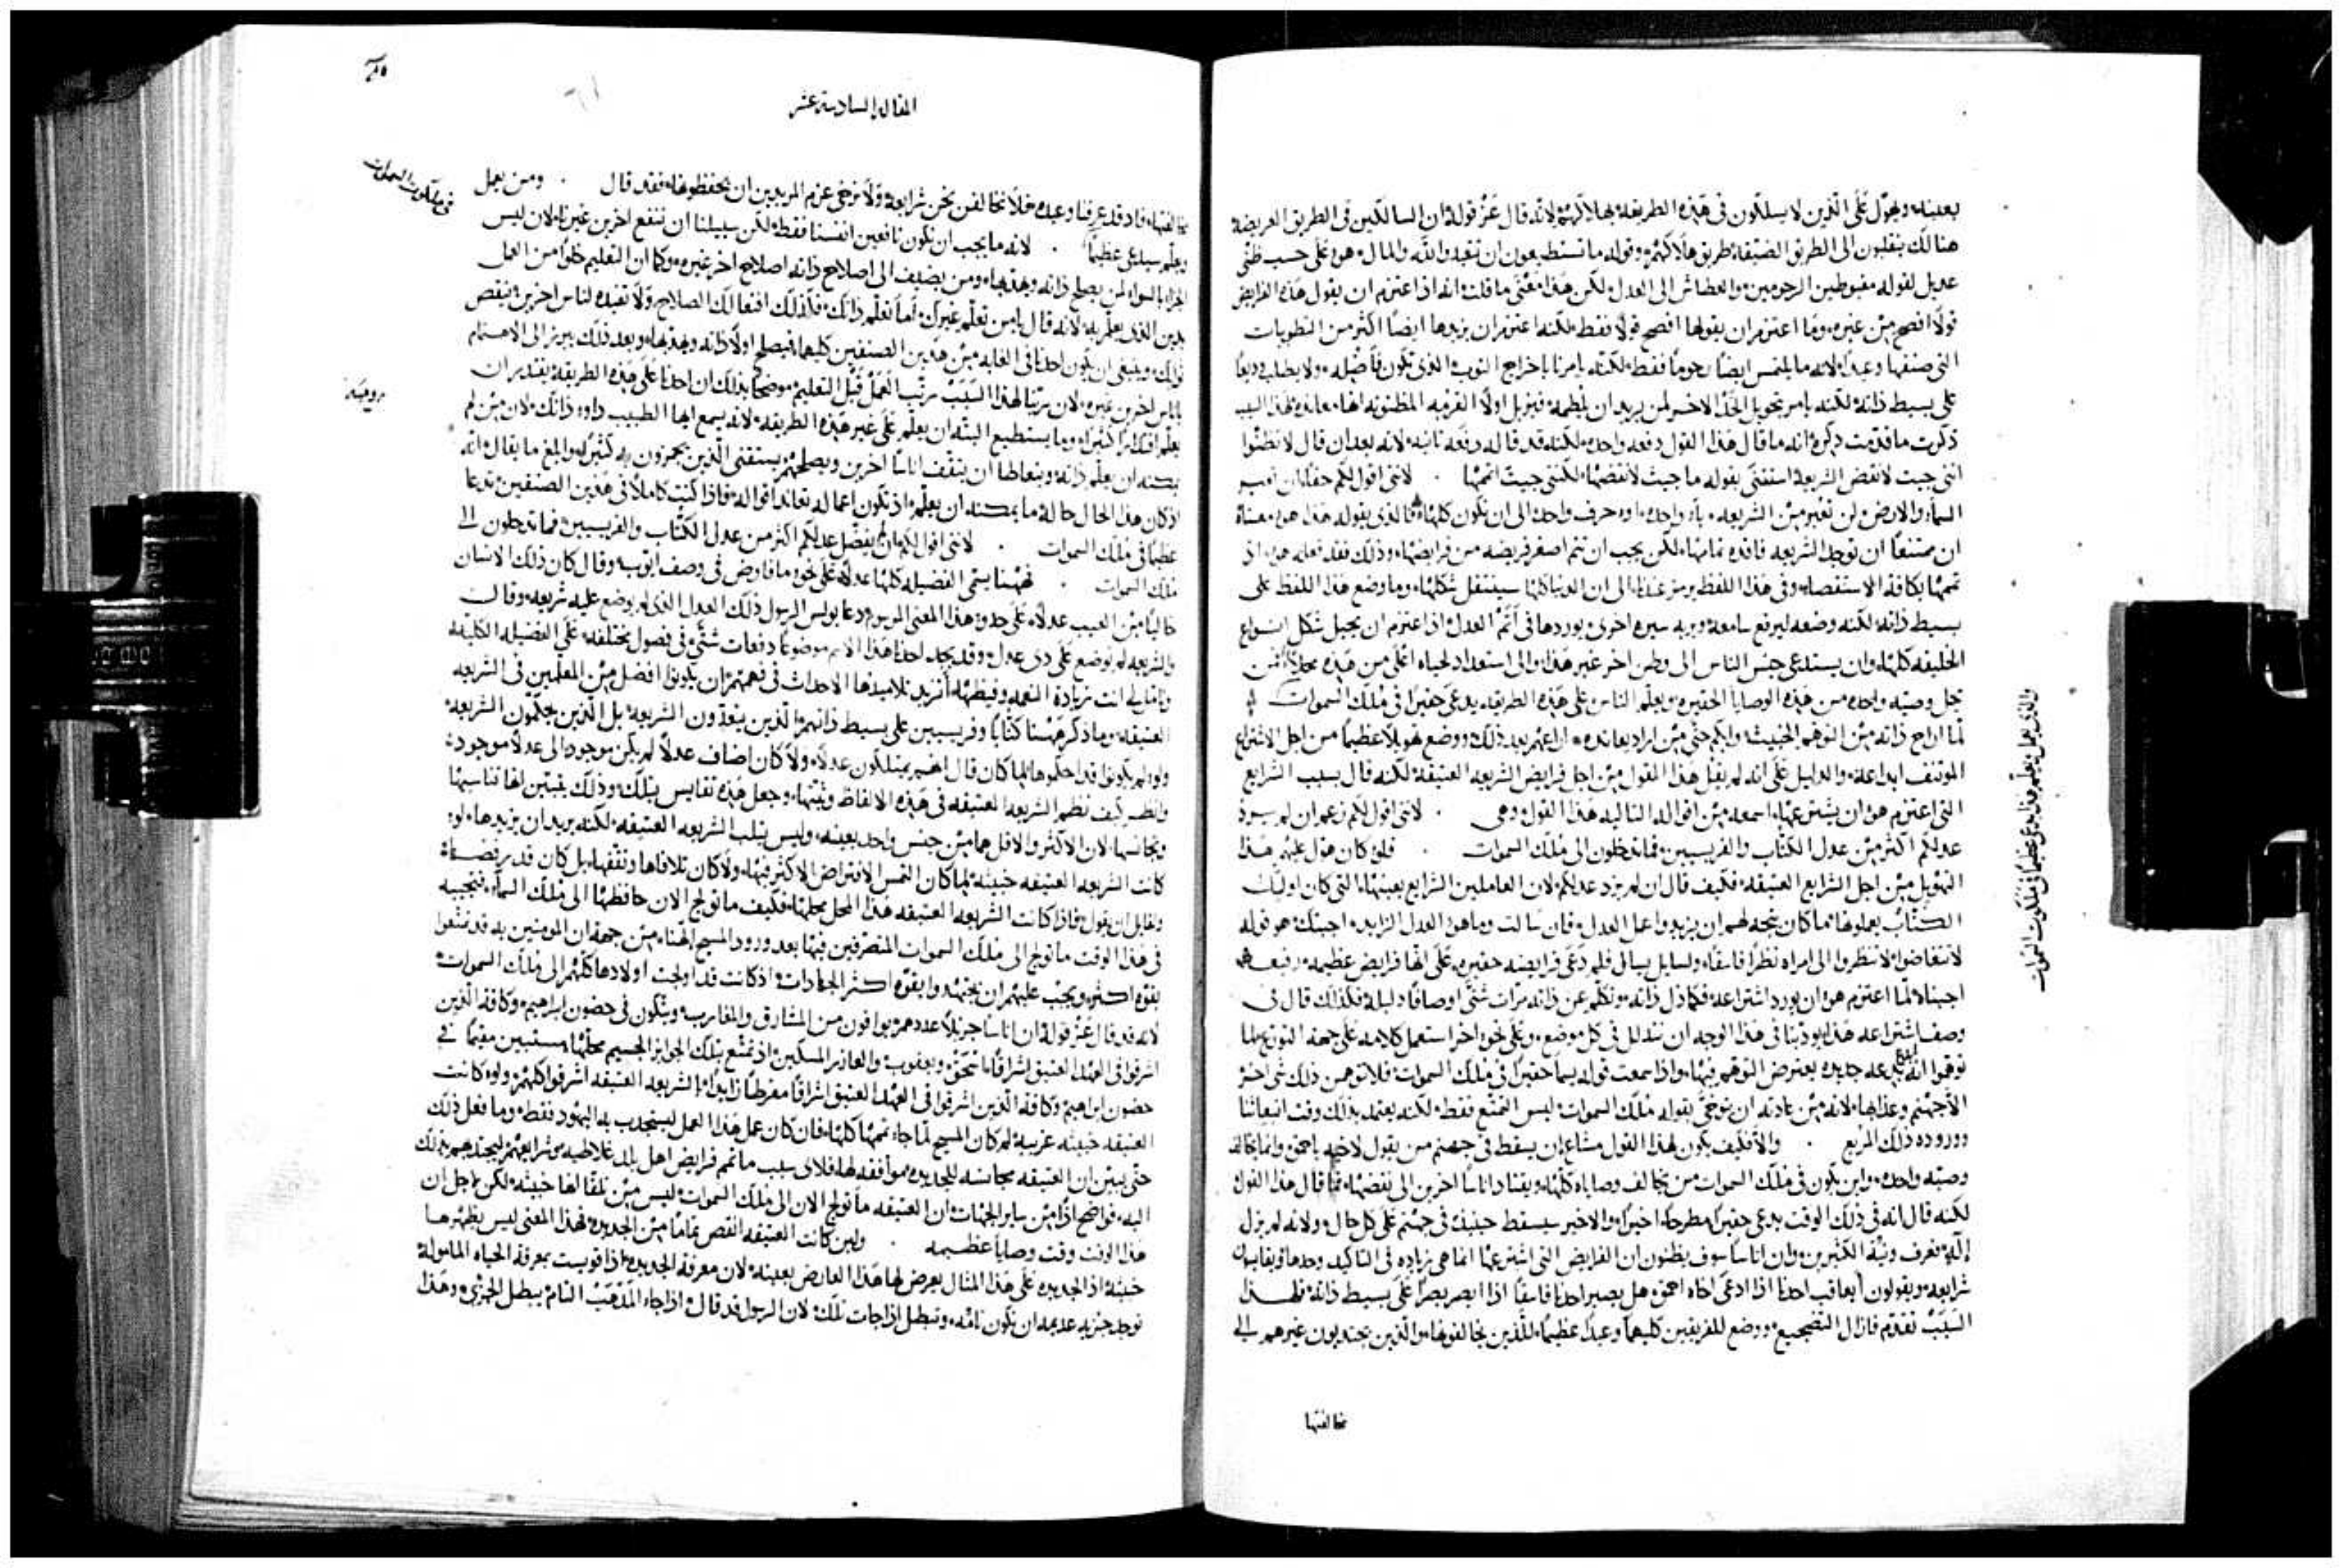 بعينه ويهوّل على الذين لا يسلكون في هذه الطريقة بهلاكهم لانه قال عز قوله ان السالكين في الطريق العريضة
هنالك ينقلبون الى الطريق الضيقة طريق هلاكهم وقوله ما تستطيعون ان تعبدوا الله والمال هو على حسب ظني
عديل لقوله مغبوطين الرحومين والعطاش الى العدل لكن هذا معنى ما قلت انه اذا اعتزم ان يقول هذه الفرايض
قولاً افصح من غيره وما اعتزم ان يقولها افصح قولاً فقط لكنه اعتزم ان يزيدها ايضاً اكثر من التطويبات
التي صنفها وعيداً لانه ما يلتمس ايضاً رحوماً فقط لكنه يامرنا باخراج الثوب الذي تكون فاضله ولا يطلب وديعاً
على بسيط ذاته لكنه يامر بتحويل الخد الاخر لمن يريد ان يلطمه فيزيل اولاً الفرية المظنونه انها معانده لهذا السبب
ذكرت ما قدمت ذكره انه ما قال هذا القول دفعه واحده لكنه قد قاله دفعه ثانيه لانه بعد ان قال لا تظنوا
انني جيت لانقض الشريعة استثنى بقوله ما جيت لانقضها لكنني جيت اتممها . لانني اقول لكم حقاً ان تعبر
السماء والارض لن تعبر من الشريعه ياء واحده او حرف واحد الى ان تكون كلها فالذي يقوله هذا هو معناه
ان ممتنعاً ان توجد الشريعه فاقده تمامها لكن يجب ان تتم اصغر فريضه من فرايضها وذلك فقد فعله هو اذ
تممها بكافة الاستقصاء وفي هذا اللفظ يرمز عندنا الى ان الدنيا كلها سينتقل شكلها وما وضع هذا اللفظ على
بسيط ذاته لكنه وضعه ليرفع سامعه ويريه سيره اخرى يوردها في اتم العدل اذا اعتزم ان يحيل شكل انواع
الخليقه كلها وان يستدعي جنس الناس الى وطن اخر غير هذا والى استعداد لحياه اعلى من هذه محلاً فمن
يحل وصيه واحده من هذه الوصايا الحقيره ويعلم الناس على هذه الطريقه يدعى حقيراً في ملك السموات .
لما اراح ذاته من التوهم الخبيث وابكم حتى من اراد يعانده اراعهم بعد ذلك ووضع تهويلاً عظيماً من اجل الاشتراع
المونف ابداعه والدليل على انه لم يقل هذا القول من اجل فرايض الشريعه العتيقه لكنه قال بسبب الشرايع
التي اعتزم هو ان يشترعها اسمعه من اقواله التاليه هذا القول وهي . لانني اقول لكم زعم ان لم يزد
عدلكم اكثر من عدل الكتاب والفريسيين فما تدخلون الى ملك السموات . فلو كان هوّل عليهم هذا
التهويل من اجل الشرايع العتيقه فكيف قال ان لم يزد عدلكم لان العاملين الشرايع بعينها التي كان اوليك
الكتاب يعملونها ما كان يتجه لهم ان يزيدوا عمل العدل فان سالت وما هو العدل الزايد اجبتك هو قوله
لا تغتاضوا لا تنظروا الى امراه نظراً فاسقاً ولسايل يسال فلم دعى فرايضه حقيره على انها فرايض عظيمه رفيعه
اجبناه لما اعتزم هو ان يورد اشتراعه فكما ذل ذاته وتكلم عن ذاته مرات شتى اوصافاً ذليله فكذلك قال في
وصف اشتراعه هذا يودبنا في هذا الوجه ان نتذلل في كل موضع وعلى نحو اخر استعمل كلامه على جهة التورع لما
توهموا انه ابدع بدعه جديده يعترض التوهم فيها واذا سمعت قوله يسما حقيراً في ملك السموات فلا تتوهمن ذلك شي اخر
الا جهنم وعذابها لانه من عادته ان يتوخى بقوله ملك السموات ليس التمتع فقط لكنه يعتمد بذلك وقت انبعاثنا
ووروده ذلك المريع . والا فكيف يكون لهذا القول مشاعاً ان يسقط في جهنم من يقول لاخيه يا احمق وانما خالف
وصيه واحده واين يكون في ملك السموات من يخالف وصاياه كلها ويقتاد اناساً اخرين الى نقضها فما قال هذا القول
لكنه قال انه في ذلك الوقت يدعى حقيراً مطرحاً اخيراً والاخير سيسقط حينيذ في جهنم على كل حال ولانه لم يزل
إله تعرف ونية الكثيرين وان اناساً سوف يظنون ان الفرايض التي اشترعها انما هي زياده في التاكيد وحدها ويقايسون
شرايعه ويقولون أيعاقب احدنا اذا ادعى اخاه احمق هل يصير احدنا فاسقاً اذا ابصر بصراً على بسيط ذاته فلهذا
السبب تقدم فازال التضجيع ووضع للفريقين كليهما وعيداً عظيماً للذين يخالفونها والذين يجتذبون غيرهم الى
مخالفتها
والذي يعمل ويعلم هذا يدعى عظيماً في ملكوت السموات
المقاله السادسة عشر
مخالفتها فاذ قد عرفنا وعيده فلا نخالفن نحن شرايعه ولا نرخي عزم المريدين ان يحفظوها فقد قال . ومن يعمل
ويعلم سيدعى عظيماً . لانه ما يجب ان نكون نافعين انفسنا فقط لكن سبيلنا ان ننفع اخرين غيرنا لان ليس
الجزا بالسواء لمن يصلح ذاته ويهذبها ومن يضيف الى اصلاح ذاته اصلاح اخر غيره وكما ان التعليم خلواً من العمل
يدين الذي يعلم به لانه قال يا من تعلم غيرك اما تعلم ذاتك فكذلك افعالك الصلاح ولا تفيده لناس اخرين ينقص
ثوابك وينبغي ان يكون احدنا في الغايه من هذين الصنفين كليهما فيصلح اولاً ذاته ويهذبها وبعد ذلك يبرز الى الاهتمام
باناس اخرين غيره لان ربنا لهذا السبب رتب العمل قبل التعليم موضحاً بذلك ان احدنا على هذه الطريقه يقتدر ان
يعلم اقتداراً كثيراً وما يستطيع البته ان يعلم على غير هذه الطريقه لانه يسمع ايها الطبيب داوي ذاتك لان من لم
يمكنه ان يعلم ذاته ويتعاطا ان يثقف اناساً اخرين ويصلحهم يستقني الذين يهزون به كثيراً وابلغ ما يقال انه
اذ كان هذا الحال حاله ما يمكنه ان يعلم اذ تكون اعماله تعاند اقواله فاذا كنت كاملاً في هذين الصنفين تدعا
عظيماً في ملك السموات . لانني اقول لكم ان لم يفضل عدلكم اكثر من عدل الكتاب والفريسيين فما تدخلون الى
ملك السموات . فههنا يسمي الفضيله كلها عدلاً على نحو ما فاوض في وصف ايوب وقال كان ذلك الانسان
خالياً من العيب عدلاً على حدو هذا المعنى المرسوم دعا بولس الرسول ذلك العدل الذي لم يوضع عليه شريعه وقال
والشريعه لم توضع على ذي عدل وقد يجد احدنا هذا الاسم موضوعاً دفعات شتى في فصول مختلفه على الفضيله الكليه
وتامل لي انت زيادة النعمه وفيضها أتريد تلاميذها الاحداث في فهمهم ان يكونوا افضل من المعلمين في الشريعه
العتيقه وما ذكر ههنا كتاباً وفريسيين على بسيط ذاتهم الذين ينقذون الشريعه بل الذين يحكمون الشريعه
ولو لم يكونوا قد احكموها لما كان قال انهم يمتلكون عدلاً ولا كان اضاف عدلاً لم يكن موجود الى عدلاً موجوده
وانظر كيف نظم الشريعه العتيقه في هذه الالفاظ وثبتها وجعل هذه تقايس بتلك وذلك يبين انها تناسبها
وتجانسها لان الاكثر والاقل هما من جنس واحد بعينه وليس يثلب الشريعه العتيقه لكنه يريد ان يزيدها ولو
كانت الشريعه العتيقه خبيثه لما كان التمس الافتراض الاكثر فيها ولا كان تلافاها وثقفها بل كان قد رفضها
ولقايل ان يقول فاذا كانت الشريعه العتيقه هذا المحل محلها فكيف ما تولج الان حافظها الى ملك السماء فنجيبه
في هذا الوقت ما تولج الى ملك السموات المتصرفين فيها بعد ورود المسيح الهنا من جهة ان المومنين به قد تمتعوا
بقوه اكثر ويجب عليهم ان يجتهدوا بقوه اكثر الجهادات اذ كانت قد اولجت اولادها كلهم الى ملك السموات
لانه قد قال عز قوله ان اناساً جزيلاً عددهم يوافون من المشارق والمغارب ويتكون في حضون ابراهيم وكافة الذين
اشرقوا في العهد العتيق اشراقاً اسحق ويعقوب والعازر المسكين اذ تمتع بتلك الجوايز الجسيم محلها يستبين مقيماً في
حضون ابراهيم وكافة الذين اشرقوا في العهد العتيق اشراقاً مفرطاً زايداً بالشريعه العتيقه اشرفوا كلهم ولو كانت
العتيقه خبيثه غريبه له كان المسيح لما جاء تممها كلها فان كان عمل هذا العمل ليستجذب به اليهود فقط وما فعل ذلك
حتى يبين ان العتيقه مجانسه للجديده موافقه لها فلاي سبب ما تمم فرايض اهل بلد غلاطيه وشرايعهم ليجتذبهم بذلك
اليه فواضح اذا من ساير الجهات ان العتيقه ما تولج الان الى ملك السموات ليس من تلقا انها خبيثه لكن لاجل ان
هذا الوقت وقت وصايا عظيمه . ولين كانت العتيقه انقص تماماً من الجديده فهذا المعنى ليس يظهرها
خبيثه اذ الجديده على هذا المثال يعرض لها هذا العارض بعينه لان معرفة الجديده اذا قويست بمعرفة الحياه المامولة
توجد جزيه عديمه ان تكون تامه وتبطل اذا جات تلك لان الرسول قد قال اذا جاء المذهب التام يبطل الجزئي وهذا
في ملكوت السموات
روميه